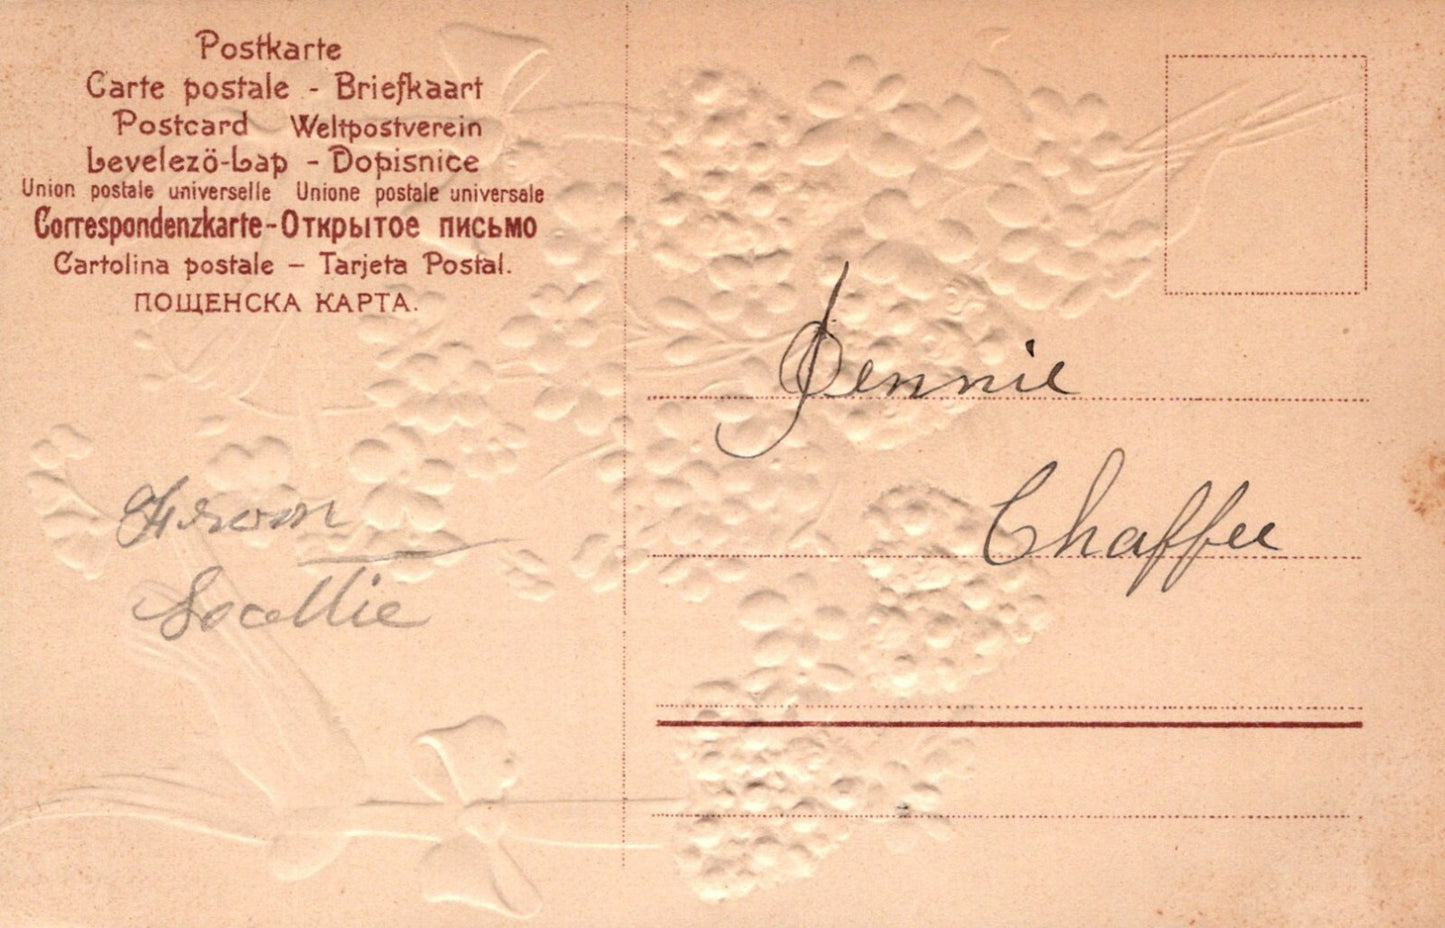 Postkarte
Carte postale - Briefkaart
Postcard Weltpostverein
Levelezö-Lap - Dopisnice
Union postale universelle Unione postale universale
Correspondenzkarte-Открытое письмо
Cartolina postale – Tarjeta Postal.
ПОЩЕНСКА КАРТА.
Jennie
Chaffee
From